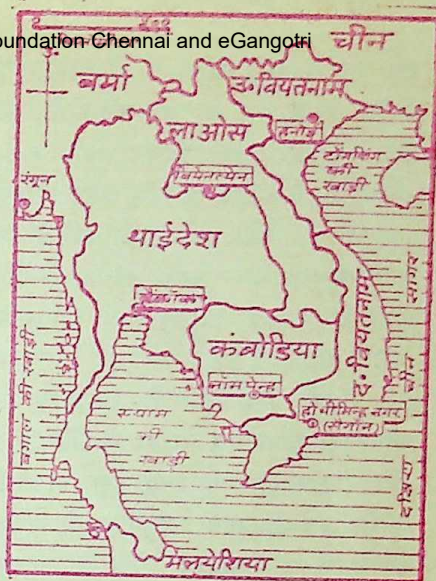 oundation Chennai and eGangotri
चीन
बर्मा
उ.वियतनाम
लाओस
हनोई
टोंगकिंग
की
खाड़ी
वियेनत्येन
रंगून
थाईदेश
बैंकॉक
कंबोडिया
नोमपेन्ह
द. वियतनाम
हो ची मिन्ह नगर
(सैगोन)
स्याम
की
खाड़ी
बंगाल की खाड़ी
दक्षिण
चीन
सागर
मलयेशिया